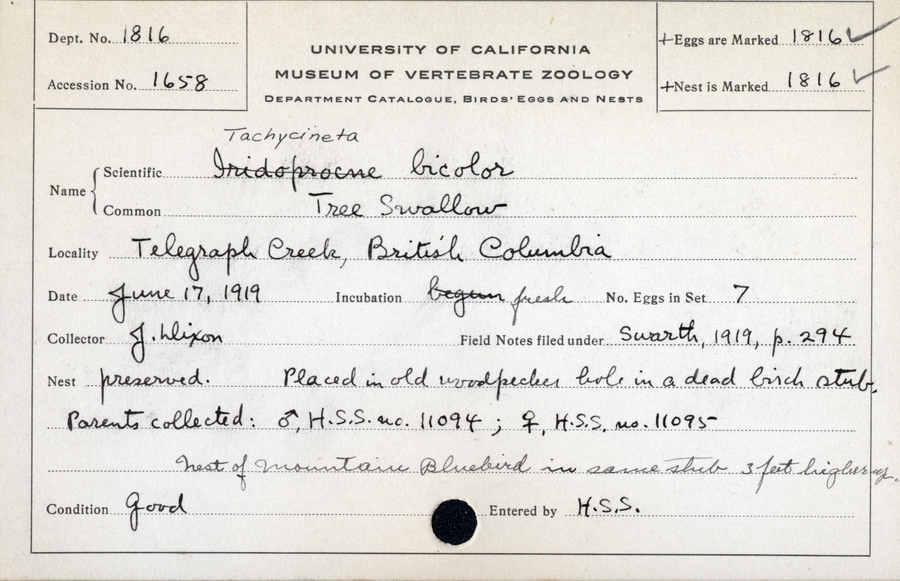 Dept. No. 1816
Accession No. 1658
UNIVERSITY OF CALIFORNIA
MUSEUM OF VERTEBRATE ZOÖLOGY
DEPARTMENT CATALOGUE, BIRDS' EGGS AND NESTS
+Eggs are Marked 1816 ✓
+Nest is Marked 1816 ✓
Tachycineta
Name { Scientific Iridoprocne bicolor
Common Tree Swallow
Locality Telegraph Creek, British Columbia
Date June 17, 1919 Incubation begun fresh No. Eggs in Set 7
Collector J. Dixon Field Notes filed under Swarth, 1919, p. 294
Nest preserved. Placed in old woodpecker hole in a dead birch stub.
Parents collected: ♂, H.S.S. no. 11094 ; ♀, H.S.S. no. 11095
nest of mountain Bluebird in same stub 3 feet higher up.
Condition Good Entered by H.S.S.